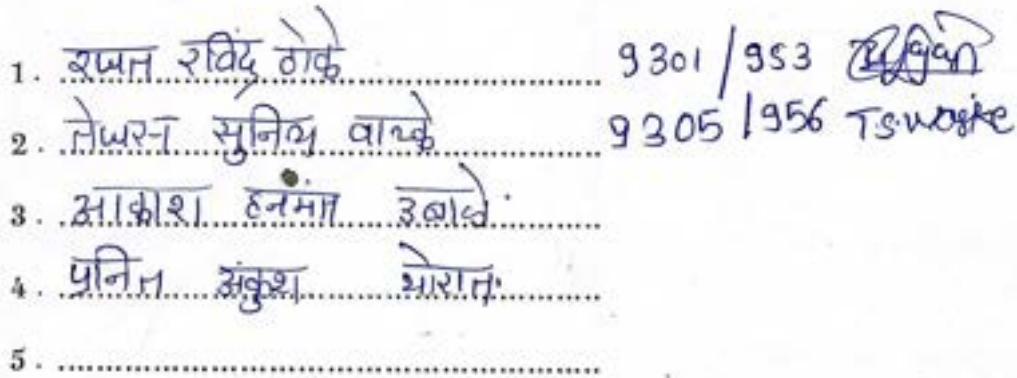 1. रजत रविंद्र ठोके 9301/953
2. तेजस सुनिल वाघ्के 9305/956 T.S. Waghe
3. आकाश हनमंत उबाळे
4. प्रनित अंकुश थोरात
5.